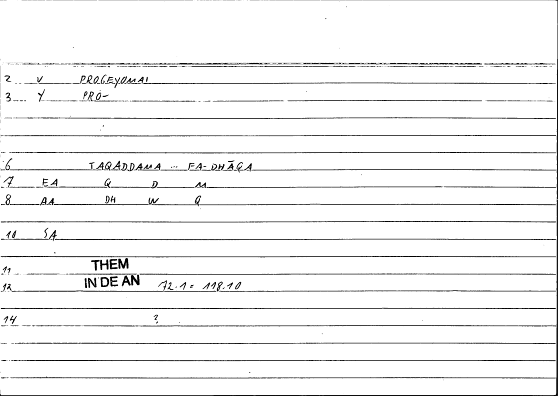 2 V PROGEYOMAI
3 Y PRO-
6 TAQADDAMA ... FA-DHĀQA
7 EA Q D M
8 AA DH W Q
10 SA
11 THEM
12 IN DE AN 72.1 = 118.10
14 ?